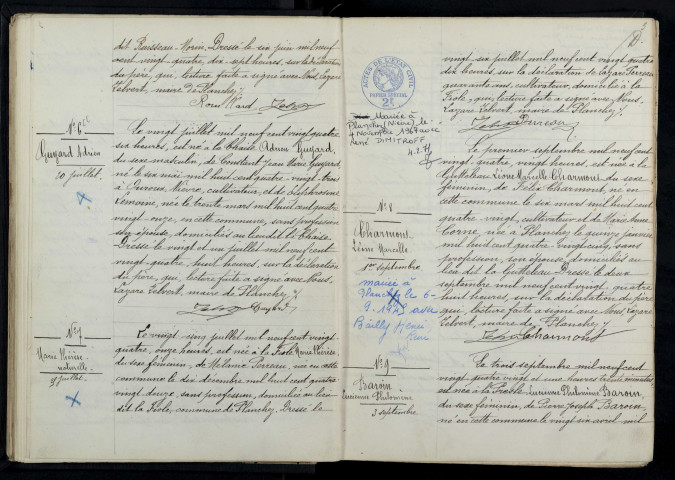 dit Rousseau-Morin. Dressé le six juin mil neuf
cent vingt-quatre, dix sept heures, sur la déclaration
du père, qui, lecture faite a signé avec Nous, Lazare
Telvert, maire de Planchez
N° 6
Guyard Adrien
20 juillet
Le vingt juillet mil neuf cent vingt quatre
six heures, est né à la Chaise Adrien Guyard,
du sexe masculin, de Constant Jean Marie Guyard,
né le six mai mil huit cent quatre-vingt-trois
à Ouroux, Nièvre, cultivateur, et de
Lemoine, née le trente mars mil huit cent quatre
vingt-onze, en cette commune, sans profession
son épouse, domiciliés au lieu dit la Chaise
Dressé le vingt et un juillet mil neuf cent
vingt-quatre, huit heures, sur la déclaration
du père, qui, lecture faite a signé avec Nous.
Lazare Telvert, maire de Planchez
N° 7
Marie Thérèse
naturelle
juillet
Le vingt-cinq juillet mil neuf cent vingt
quatre, onze heures, est née à la Fiole Marie Thérèse
du sexe féminin, de Mélanie née en cette
commune le dix décembre mil huit cent quatre
vingt douze, sans profession, domiciliée au lieu
dit la Fiole, commune de Planchez. Dressé le
vingt-six juillet mil neuf cent vingt quatre
dix heures, sur la déclaration de Lazare
quarante ans, cultivateur, domicilié à la
Fiole, qui, lecture faite a signé avec Nous.
Lazare Telvert, maire de Planchez
ACTES DE L'ETAT CIVIL
PAPIER SPECIAL
2F
Mariée à
Planchez (Nièvre) le
4 novembre 1967 avec
DIMITROFF
N° 8
Charmont
Léone Marcelle
1er septembre
mariée à
Planchez le 6-
9-19 avec
Bailly
Le premier septembre mil neuf cent
vingt-quatre, vingt heures, est née à la
Gutteleau Léone Marcelle Charmont du sexe
féminin, de Félix Charmont, né en
cette commune le six mars mil huit cent
quatre-vingt, cultivateur et de Marie Anne
Corne, née à Planchez le quinze janvier
mil huit cent quatre-vingt cinq, sans
profession, son épouse, domiciliés au
lieu dit la Gutteleau. Dressé le deux
septembre mil neuf cent vingt-quatre
huit heures, sur la déclaration du père
qui, lecture faite a signé avec Nous, Lazare
Telvert, maire de Planchez
Charmont
N° 9
Baroin
Lucienne Philomène
3 septembre
Le trois septembre mil neuf cent
vingt quatre et une heures trente minutes
est née à la Lucienne Philomène Baroin
du sexe féminin, de Pierre Joseph Baroin,
né en cette commune le vingt six avril mil